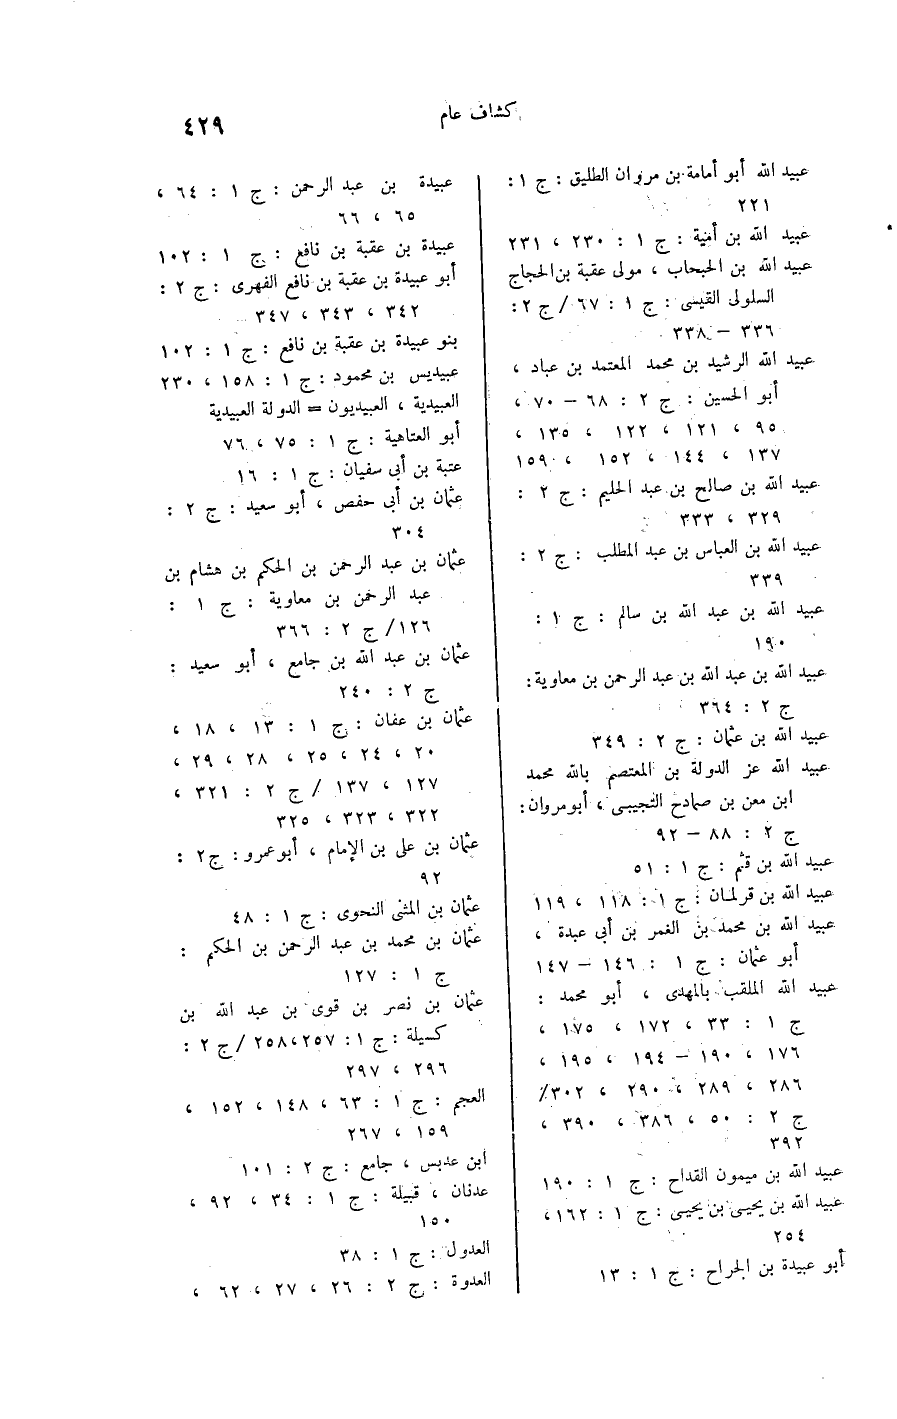 كشاف عام
٤٢٩
عبيد الله أبو أمامة بن مروان الطليق : ج ١ :
٢٢١
عبيد الله بن أمنية : ج ١ : ٢٣٠ ، ٢٣١
عبيد الله بن الحبحاب ، مولى عقبة بن الحجاج
السلولى القيسى : ج ١ : ٦٧ / ج ٢ :
٣٣٦ – ٣٣٨
عبيد الله الرشيد بن محمد المعتمد بن عباد ،
أبو الحسين : ج ٢ : ٦٨ – ٧٠ ،
٩٥ ، ١٢١ ، ١٢٢ ، ١٣٥ ،
١٣٧ ، ١٤٤ ، ١٥٢ ، ١٥٩
عبيد الله بن صالح بن عبد الحليم : ج ٢ :
٣٢٩ ، ٣٣٣
عبيد الله بن العباس بن عبد المطلب : ج ٢ :
٣٣٩
عبيد الله بن عبد الله بن سالم : ج ١ :
١٩٠
عبيد الله بن عبد الله بن عبد الرحمن بن معاوية :
ج ٢ : ٣٦٤
عبيد الله بن عثمان : ج ٢ : ٣٤٩
عبيد الله عز الدولة بن المعتصم بالله محمد
ابن معن بن صمادح التجيبى ، أبو مروان :
ج ٢ : ٨٨ – ٩٢
عبيد الله بن قثم : ج ١ : ٥١
عبيد الله بن قرلمان : ج ١ : ١١٨ ، ١١٩
عبيد الله بن محمد بن الغمر بن أبى عبدة ،
أبو عثمان : ج ١ : ١٤٦ – ١٤٧
عبيد الله الملقب بالمهدى ، أبو محمد :
ج ١ : ٣٣ ، ١٧٢ ، ١٧٥ ،
١٧٦ ، ١٩٠ – ١٩٤ ، ١٩٥ ،
٢٨٦ ، ٢٨٩ ، ٢٩٠ ، ٣٠٢ /
ج ٢ : ٥٠ ، ٣٨٦ ، ٣٩٠ ،
٣٩٢
عبيد الله بن ميمون القداح : ج ١ : ١٩٠
عبيد الله بن يحيى بن يحيى : ج ١ : ١٦٢ ،
٢٥٤
أبو عبيدة بن الجراح : ج ١ : ١٣
عبيدة بن عبد الرحمن : ج ١ : ٦٤ ،
٦٥ ، ٦٦
عبيدة بن عقبة بن نافع : ج ١ : ١٠٢
أبو عبيدة بن عقبة بن نافع الفهرى : ج ٢ :
٣٤٢ ، ٣٤٣ ، ٣٤٧
بنو عبيدة بن عقبة بن نافع : ج ١ : ١٠٢
عبيديس بن محمود : ج ١ : ١٥٨ ، ٢٣٠
العبيدية ، العبيديون = الدولة العبيدية
أبو العتاهية : ج ١ : ٧٥ ، ٧٦
عتبة بن أبى سفيان : ج ١ : ١٦
عثمان بن أبى حفص ، أبو سعيد : ج ٢ :
٣٠٤
عثمان بن عبد الرحمن بن الحكم بن هشام بن
عبد الرحمن بن معاوية : ج ١ :
١٢٦ / ج ٢ : ٣٦٦
عثمان بن عبد الله بن جامع ، أبو سعيد :
ج ٢ : ٢٤٠
عثمان بن عفان : ج ١ : ١٣ ، ١٨ ،
٢٠ ، ٢٤ ، ٢٥ ، ٢٨ ، ٢٩ ،
١٢٧ ، ١٣٧ / ج ٢ : ٣٢١ ،
٣٢٢ ، ٣٢٣ ، ٣٢٥
عثمان بن على بن الإمام ، أبو عمرو : ج ٢ :
٩٢
عثمان بن المثنى النحوى : ج ١ : ٤٨
عثمان بن محمد بن عبد الرحمن بن الحكم :
ج ١ : ١٢٧
عثمان بن نصر بن قوى بن عبد الله بن
كسيلة : ج ١ : ٢٥٧ ، ٢٥٨ / ج ٢ :
٢٩٦ ، ٢٩٧
العجم : ج ١ : ٦٣ ، ١٤٨ ، ١٥٢ ،
١٥٩ ، ٢٦٧
ابن عديس ، جامع : ج ٢ : ١٠١
عدنان ، قبيلة : ج ١ : ٣٤ ، ٩٢ ،
١٥٠
العدول : ج ١ : ٣٨
العدوة : ج ٢ : ٢٦ ، ٢٧ ، ٦٢ ،